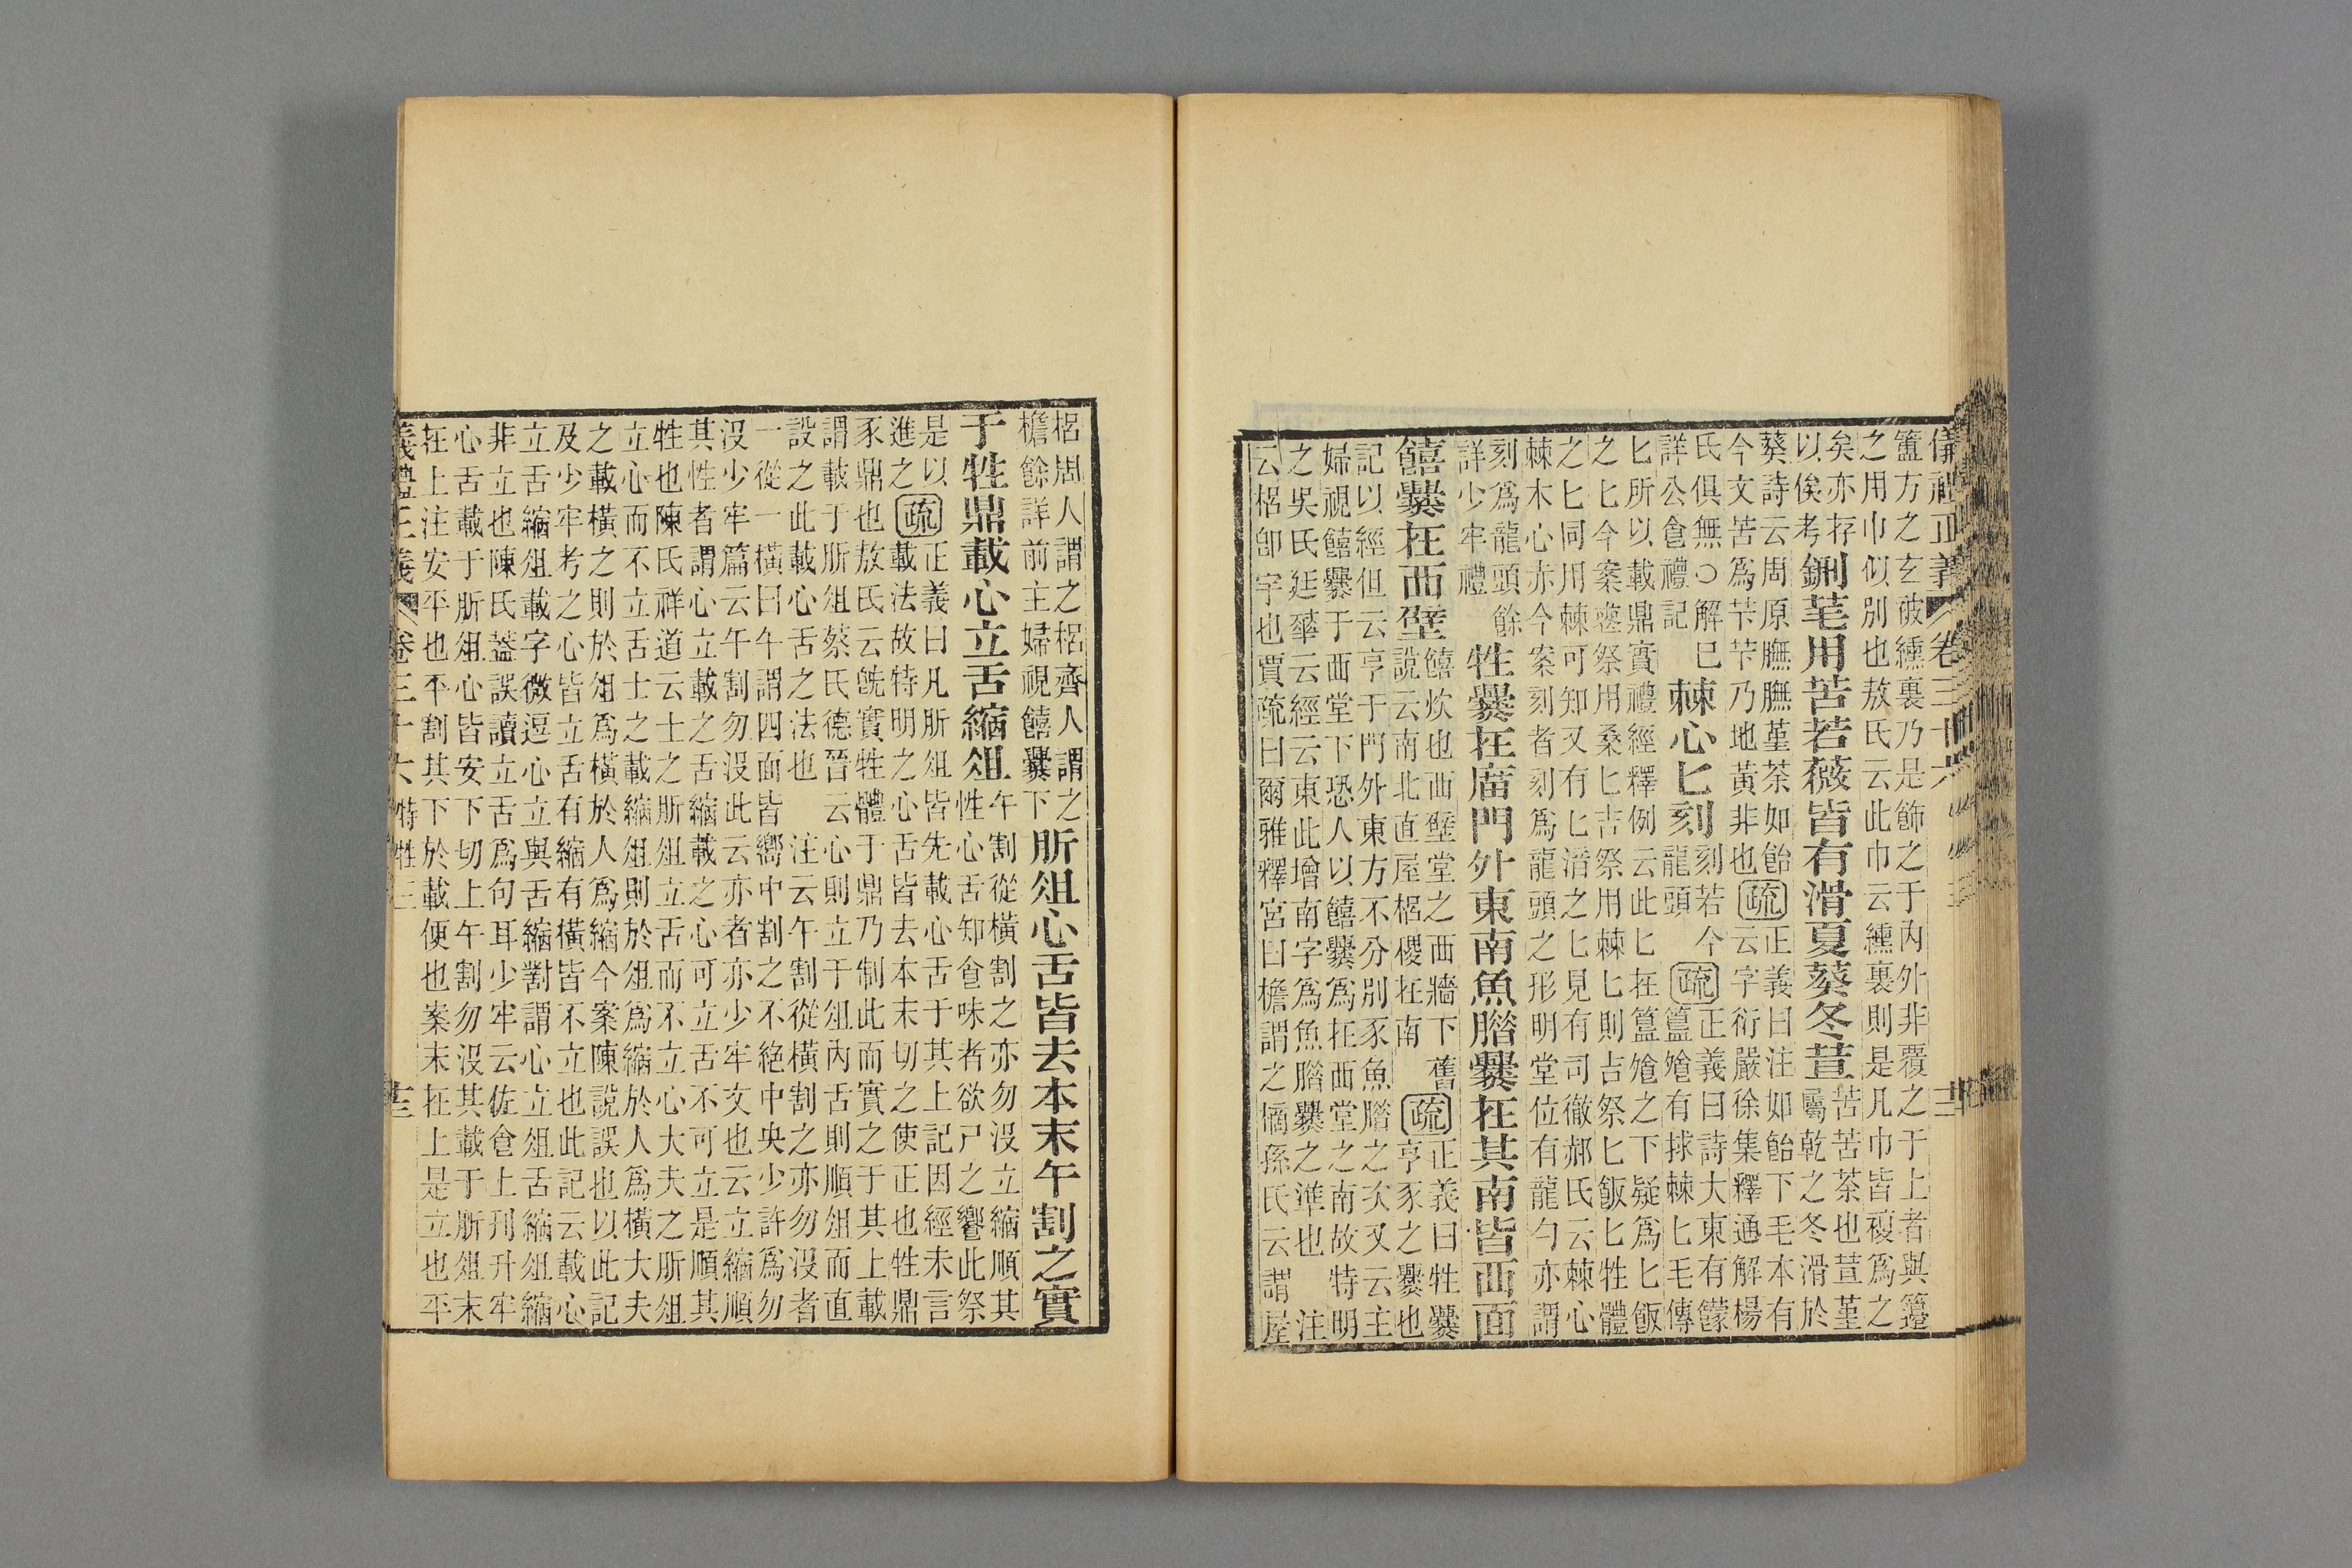 儀禮正義 卷三十六
簠方之玄被纁裏乃是飾之于内外非覆之于上者與籩
之用巾似別也敖氏云此巾云纁裏則是凡巾皆複爲之
矣亦存
以俟考
鉶芼用苦若薇皆有滑夏葵冬荁
苦苦荼也荁堇
屬乾之冬滑於
葵詩云周原膴膴堇荼如飴
今文苦爲苄苄乃地黃非也
疏
正義曰注如飴下毛本有
云字衍嚴徐集釋通解楊
氏俱無○解巳
詳公食禮記
棘心匕刻
刻若今
龍頭
疏
正義曰詩大東有饛
簋飧有捄棘匕毛傳
匕所以載鼎實禮經釋例云此匕在簋飧之下疑爲匕飯
之匕今案喪祭用桑匕吉祭用棘匕則吉祭匕飯匕牲體
之匕同用棘可知又有匕湆之匕見有司徹郝氏云棘心
棘木心亦今案刻者刻爲龍頭之形明堂位有龍勺亦謂
刻爲龍頭餘
詳少牢禮
牲爨在廟門外東南魚腊爨在其南皆西面
饎爨在西壁
饎炊也西壁堂之西牆下舊
說云南北直屋梠稷在南
疏
正義曰牲爨
亨豕之爨也
記以經但云亨于門外東方不分別豕魚腊之次又云主
婦視饎爨于西堂下恐人以饎爨爲在西堂之南故特明
之吳氏廷華云經云東此增南字爲魚腊爨之準也 注
云梠卽宇也賈疏曰爾雅釋宮曰檐謂之樀孫氏云謂屋
梠周人謂之梠齊人謂之
檐餘詳前主婦視饎爨下
肵俎心舌皆去本末午割之實
于牲鼎載心立舌縮俎
午割從橫割之亦勿没立縮順其
性心舌知食味者欲尸之饗此祭
是以
進之
疏
正義曰凡肵俎皆先載心舌于其上記因經未言
載法故特明之心舌皆去本末切之使正也牲鼎
豕鼎也敖氏云旣實牲體于鼎乃制此而實之于其上載
謂載于肵俎蔡氏德晉云心則立于俎內舌則順俎而直
設之此載心舌之法也 注云午割從橫割之亦勿没者
一從一橫曰午謂四面皆嚮中割之不絕中央少許爲勿
没少牢篇云午割勿没此云亦者亦少牢文也云立縮順
其性者謂心立載之舌縮載之心可立舌不可立是順其
牲也陳氏祥道云士之肵俎立舌而不立心大夫之肵俎
立心而不立舌士之載縮俎則於俎爲縮於人爲橫大夫
之載橫之則於俎爲橫於人爲縮今案陳說誤也以此記
及少牢考之心皆立舌有縮有橫皆不立也此記云載心
立舌縮俎載字微逗心立與舌縮對謂心立俎舌縮俎縮
非立也陳氏蓋誤讀立舌爲句耳少牢云佐食上刌升牢
心舌載于肵俎心皆安下切上午割勿没其載于肵俎末
在上注安平也平割其下於載便也案末在上是立也平
義禮正義 卷三十六 特牲三